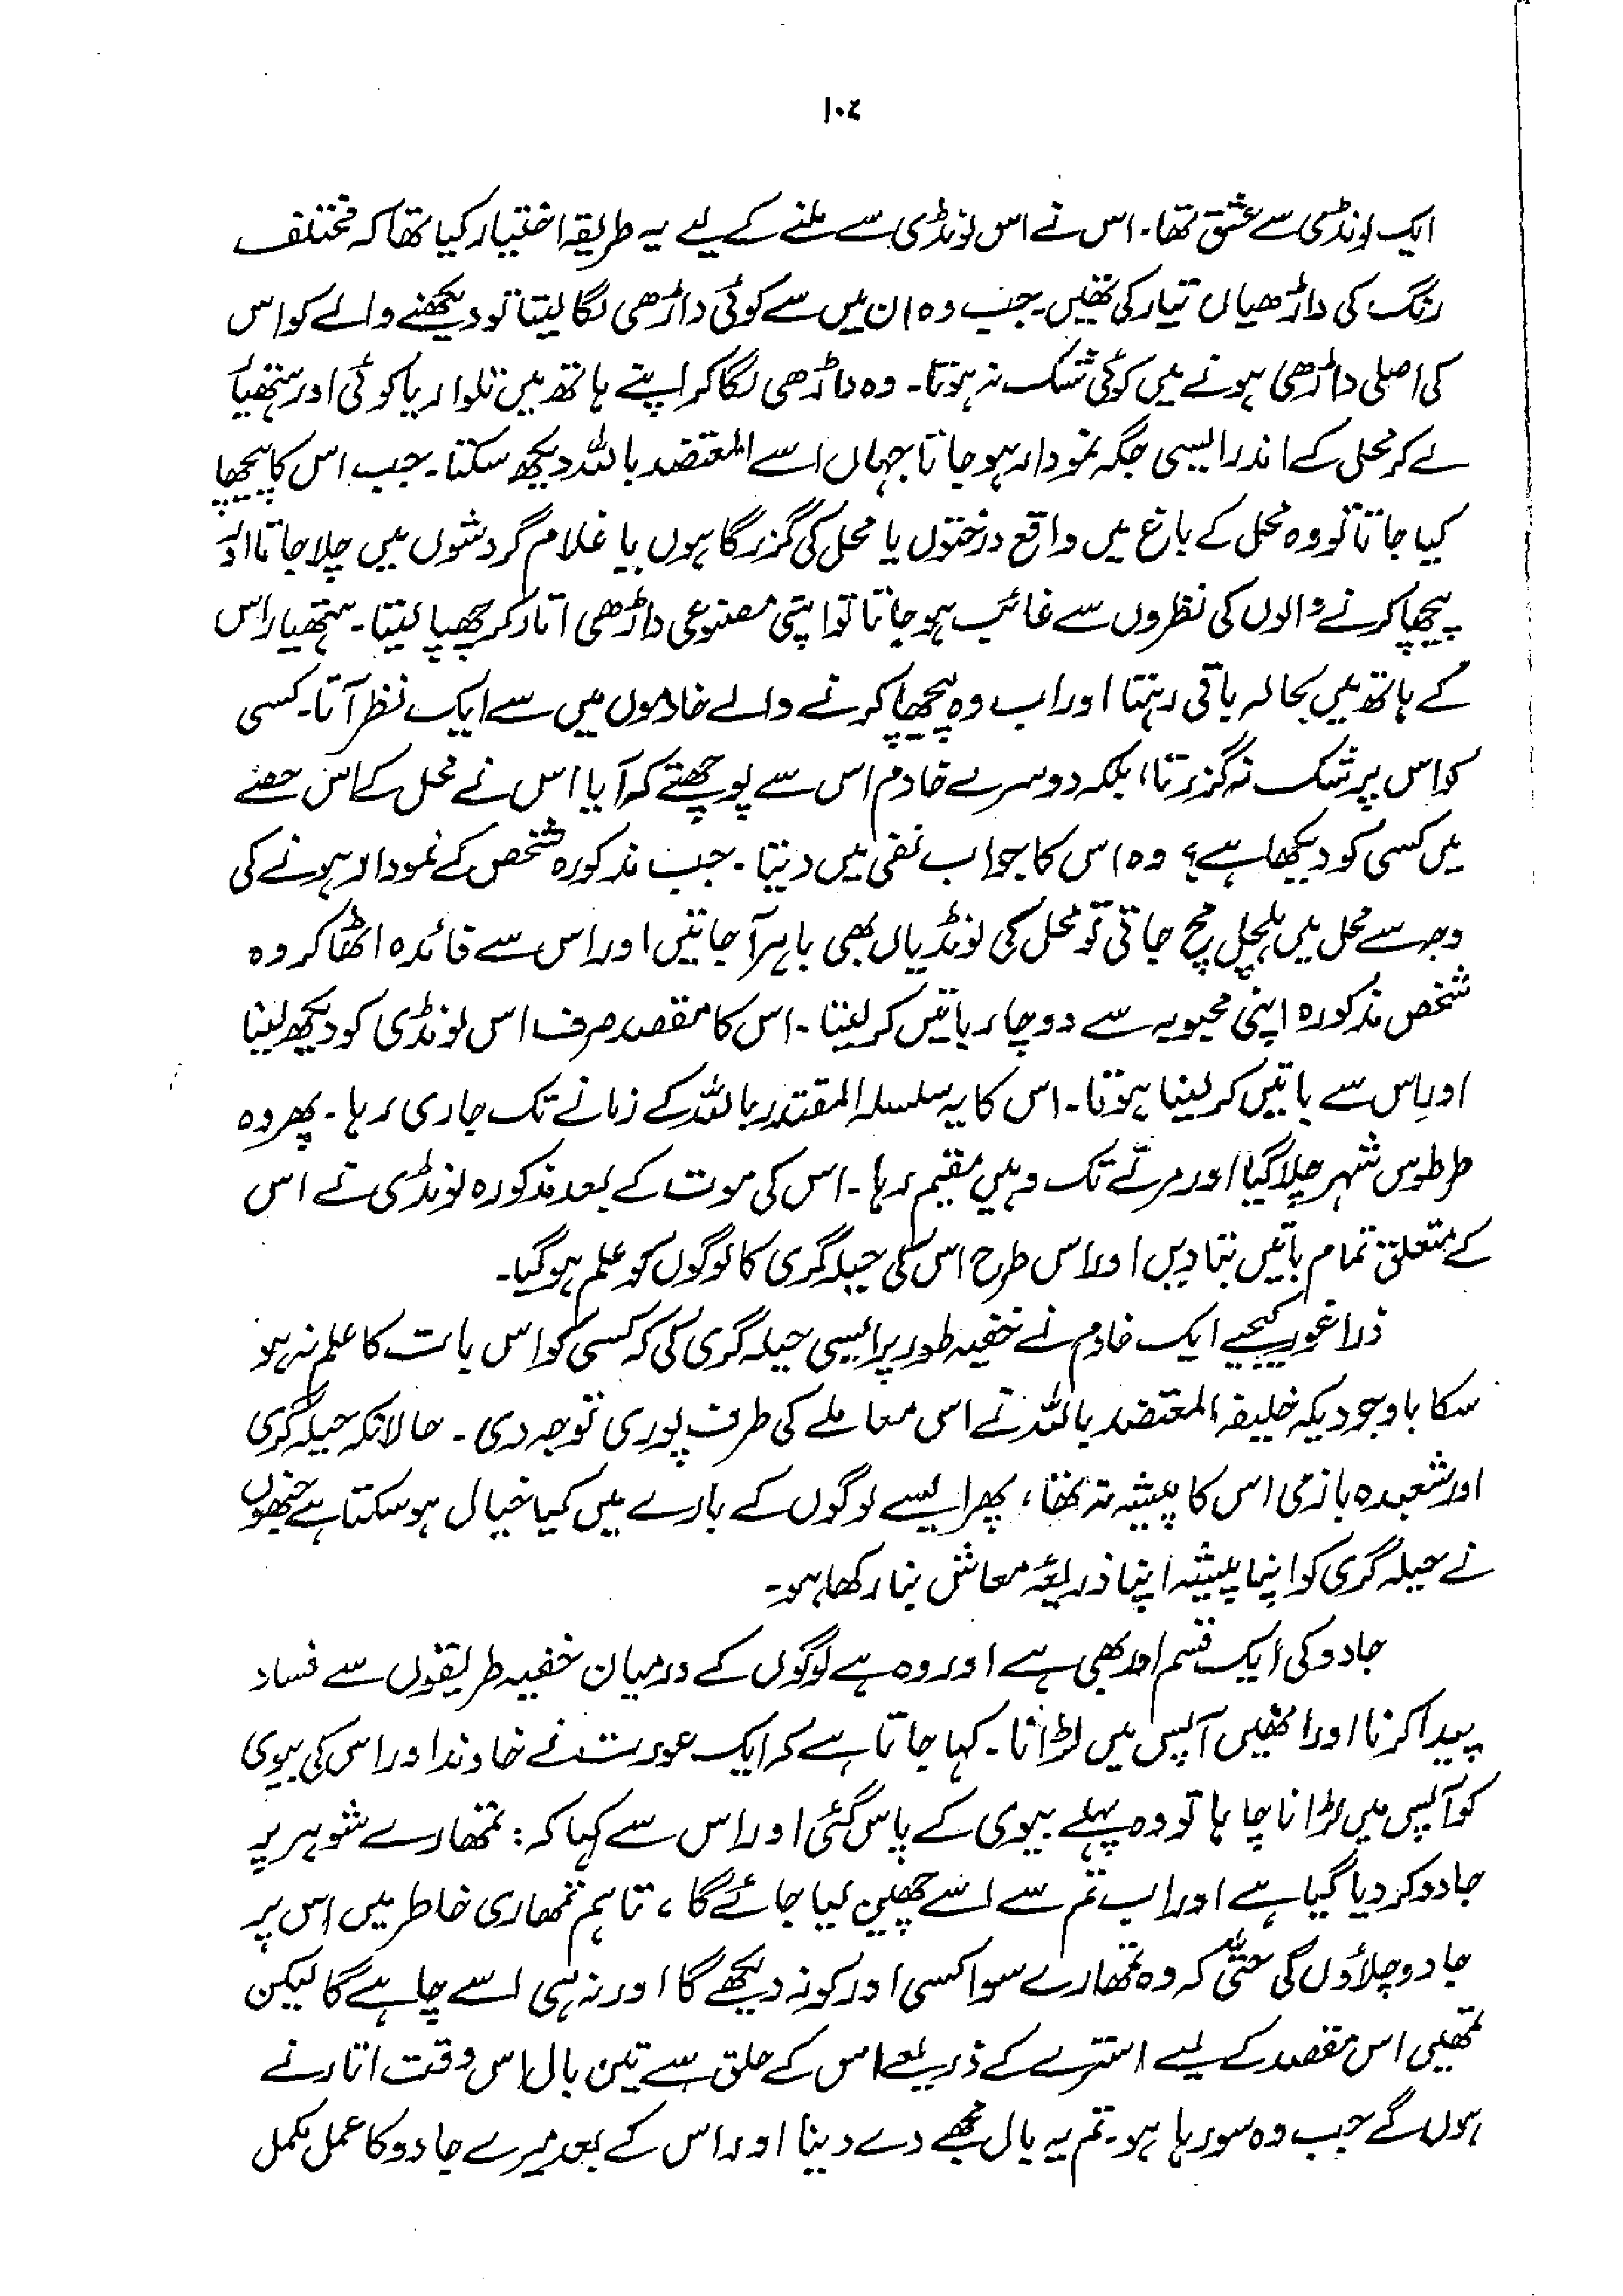 ۱۰۲
ایک لونڈی سے عشق تھا۔ اس نے اس لونڈی سے ملنے کے لیے یہ طریقہ اختیار کیا تھا کہ مختلف
رنگ کی داڑھیاں تیار کی تھیں۔ جب وہ ان میں سے کوئی داڑھی لگا لیتا تو دیکھنے والے کو اس
کی اصلی داڑھی ہونے میں کوئی شک نہ ہوتا۔ وہ داڑھی لگا کر اپنے ہاتھ میں تلوار یا کوئی اور ہتھیار
لے کر محل کے اندر ایسی جگہ نمودار ہو جاتا جہاں اسے المعتضد باللہ دیکھ سکتا۔ جب اس کا پیچھا
کیا جاتا تو وہ محل کے باغ میں واقع درختوں یا محل کی گزرگاہوں یا غلام گردشوں میں چلا جاتا اور
پیچھا کرنے والوں کی نظروں سے غائب ہو جاتا تو اپنی مصنوعی داڑھی اتار کر چھپا لیتا۔ ہتھیار اس
کے ہاتھ میں بحالہ باقی رہتا اور اب وہ پیچھا کرنے والے خادموں میں سے ایک نظر آتا۔ کسی
کو اس پر شک نہ گزرتا، بلکہ دوسرے خادم اس سے پوچھتے کہ آیا اس نے محل کے اس حصے
میں کسی کو دیکھا ہے؟ وہ اس کا جواب نفی میں دیتا۔ جب مذکورہ شخص کے نمودار ہونے کی
وجہ سے محل میں ہلچل مچ جاتی تو محل کی لونڈیاں بھی باہر آ جاتیں اور اس سے فائدہ اٹھا کر وہ
شخص مذکورہ اپنی محبوبہ سے دو چار باتیں کر لیتا۔ اس کا مقصد صرف اس لونڈی کو دیکھ لینا
اور اس سے باتیں کر لینا ہوتا۔ اس کا یہ سلسلہ المقتدر باللہ کے زمانے تک جاری رہا۔ پھر وہ
طرطوس شہر چلا گیا اور مرتے تک وہیں مقیم رہا۔ اس کی موت کے بعد مذکورہ لونڈی نے اس
کے متعلق تمام باتیں بتا دیں اور اس طرح اس کی حیلہ گری کا لوگوں کو علم ہو گیا۔
ذرا غور کیجیے ایک خادم نے خفیہ طور پر ایسی حیلہ گری کی کہ کسی کو اس بات کا علم نہ ہو
سکا باوجودیکہ خلیفہ المعتضد باللہ نے اس معاملے کی طرف پوری توجہ دی۔ حالانکہ حیلہ گری
اور شعبدہ بازی اس کا پیشہ نہ تھا، پھر ایسے لوگوں کے بارے میں کیا خیال ہو سکتا ہے جنھوں
نے حیلہ گری کو اپنا پیشہ اپنا ذریعۂ معاش بنا رکھا ہو۔
جادو کی ایک قسم اور بھی ہے اور وہ ہے لوگوں کے درمیان خفیہ طریقوں سے فساد
پیدا کرنا اور انھیں آپس میں لڑانا۔ کہا جاتا ہے کہ ایک عورت نے خاوند اور اس کی بیوی
کو آپس میں لڑانا چاہا تو وہ پہلے بیوی کے پاس گئی اور اس سے کہا کہ: تمھارے شوہر پر
جادو کر دیا گیا ہے اور اب تم سے اسے چھین لیا جائے گا، تاہم تمھاری خاطر میں اس پر
جادو چلاؤں گی حتیٰ کہ وہ تمھارے سوا کسی اور کو نہ دیکھے گا اور نہ ہی اسے چاہے گا لیکن
تمھیں اس مقصد کے لیے استرے کے ذریعے اس کے حلق سے تین بال اس وقت اتارنے
ہوں گے جب وہ سو رہا ہو۔ تم یہ بال مجھے دے دینا اور اس کے بعد میرے جادو کا عمل مکمل